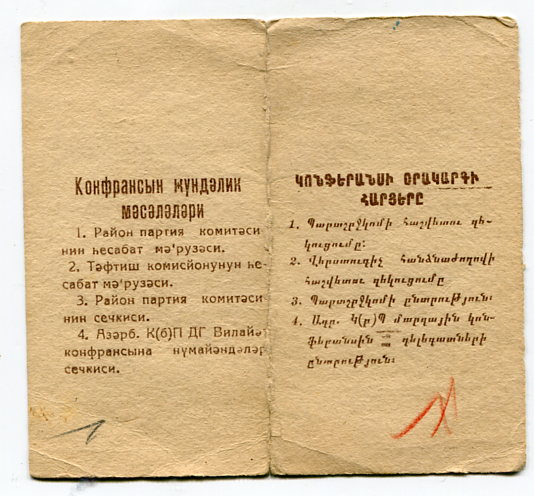 Конфрансын мүндәлик
мәсәләләри
1. Район партия комитәси-
нин һесабат мә'рузәси.
2. Тәфтиш комисйонунун һе-
сабат мә'рузәси.
3. Район партия комитәси-
нин сечкиси.
4. Азәрб. К(б)П ДГ Вилайәт
конфрансына нүмайәндәләр
сечкиси.
ԿՈՆՖԵՐԱՆՍԻ ՕՐԱԿԱՐԳԻ
ՀԱՐՑԵՐԸ
1. Պարտշրջկոմի հաշվետու զե-
կուցումը:
2. Վերստուգիչ հանձնաժողովի
հաշվետու զեկուցումը
3. Պարտշրջկոմի ընտրություն:
4. Ադր. Կ(բ)Պ մարզային կոն-
ֆերանսին դելեգատների
ընտրություն: